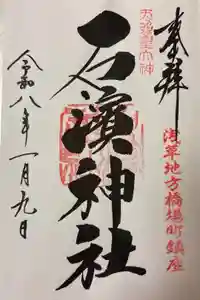 奉拝
浅草地方橋場町鎮座
石濱神社
令和八年一月九日